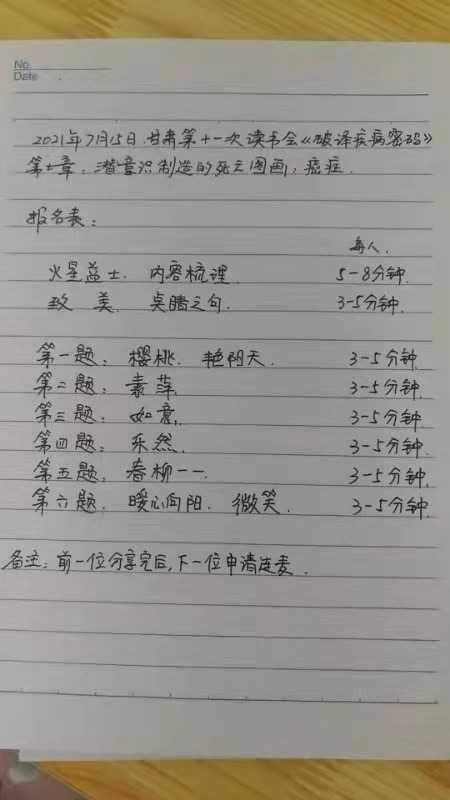 No.
Date
2021年7月15日.甘肃第十一次读书会《破译疾病密码》
第七章.潜意识制造的死亡图画:癌症.
报名表:
每人.
火星益士. 内容梳理. 5-8分钟.
玫 美. 桌腊之句. 3-5分钟.
第一题: 樱桃. 艳阳天. 3-5分钟.
第二题: 素萍. 3-5分钟.
第三题: 如意. 3-5分钟.
第四题: 乐然. 3-5分钟.
第五题. 春柳一一. 3-5分钟.
第六题. 暖心向阳. 微笑. 3-5分钟.
备注: 前一位分享完后,下一位申请连麦.